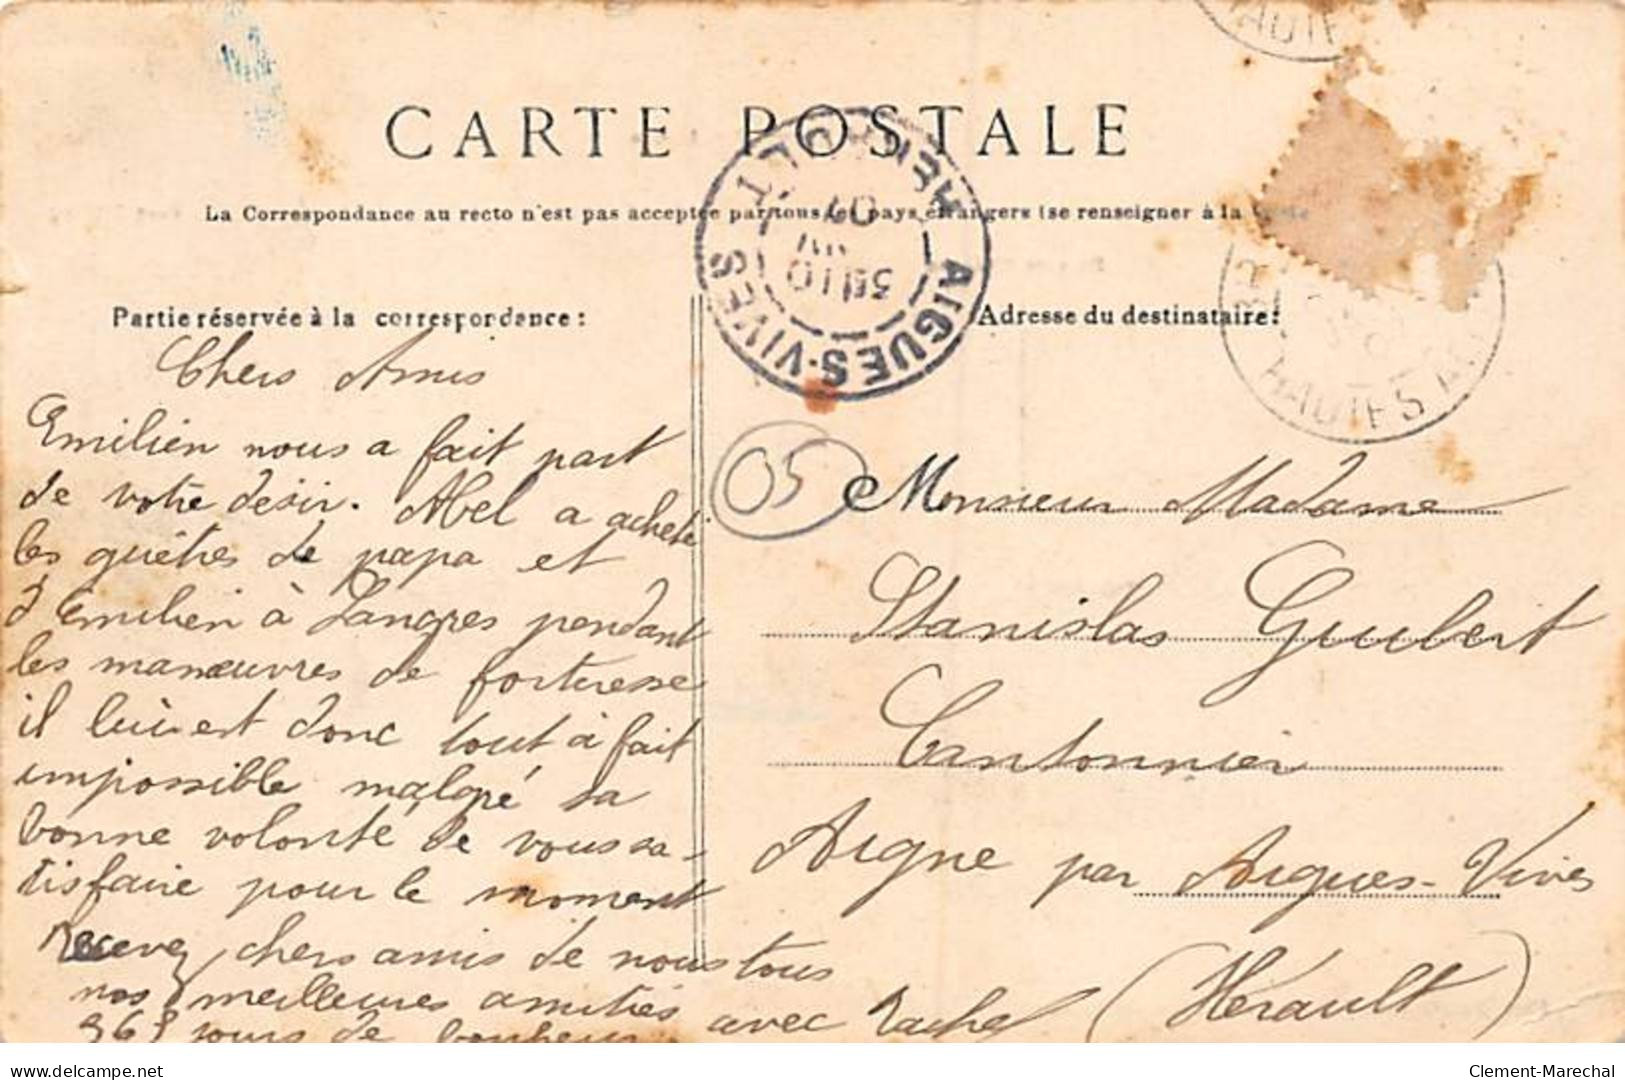 CARTE POSTALE
La Correspondance au recto n'est pas acceptée par tous les pays étrangers (se renseigner à la
Partie réservée à la correspondance :
Adresse du destinataire :
AIGUES-VIVES
10
07
HAUTES
05
Chers Amis
Emilien nous a fait part
de votre désir. Abel a acheté
les guêtres de papa et
d'Emilien à Langres pendant
les manœuvres de forteresse
il lui est donc tout à fait
impossible malgré sa
bonne volonté de vous sa-
tisfaire pour le moment
Recevez chers amis de nous tous
nos meilleures amitiés avec Rachel
365 jours de bonheur
Monsieur Madame
Stanislas Guibert
Cantonnier
Aigne par Aigues-Vives
(Hérault)
delcampe.net
Clement-Marechal